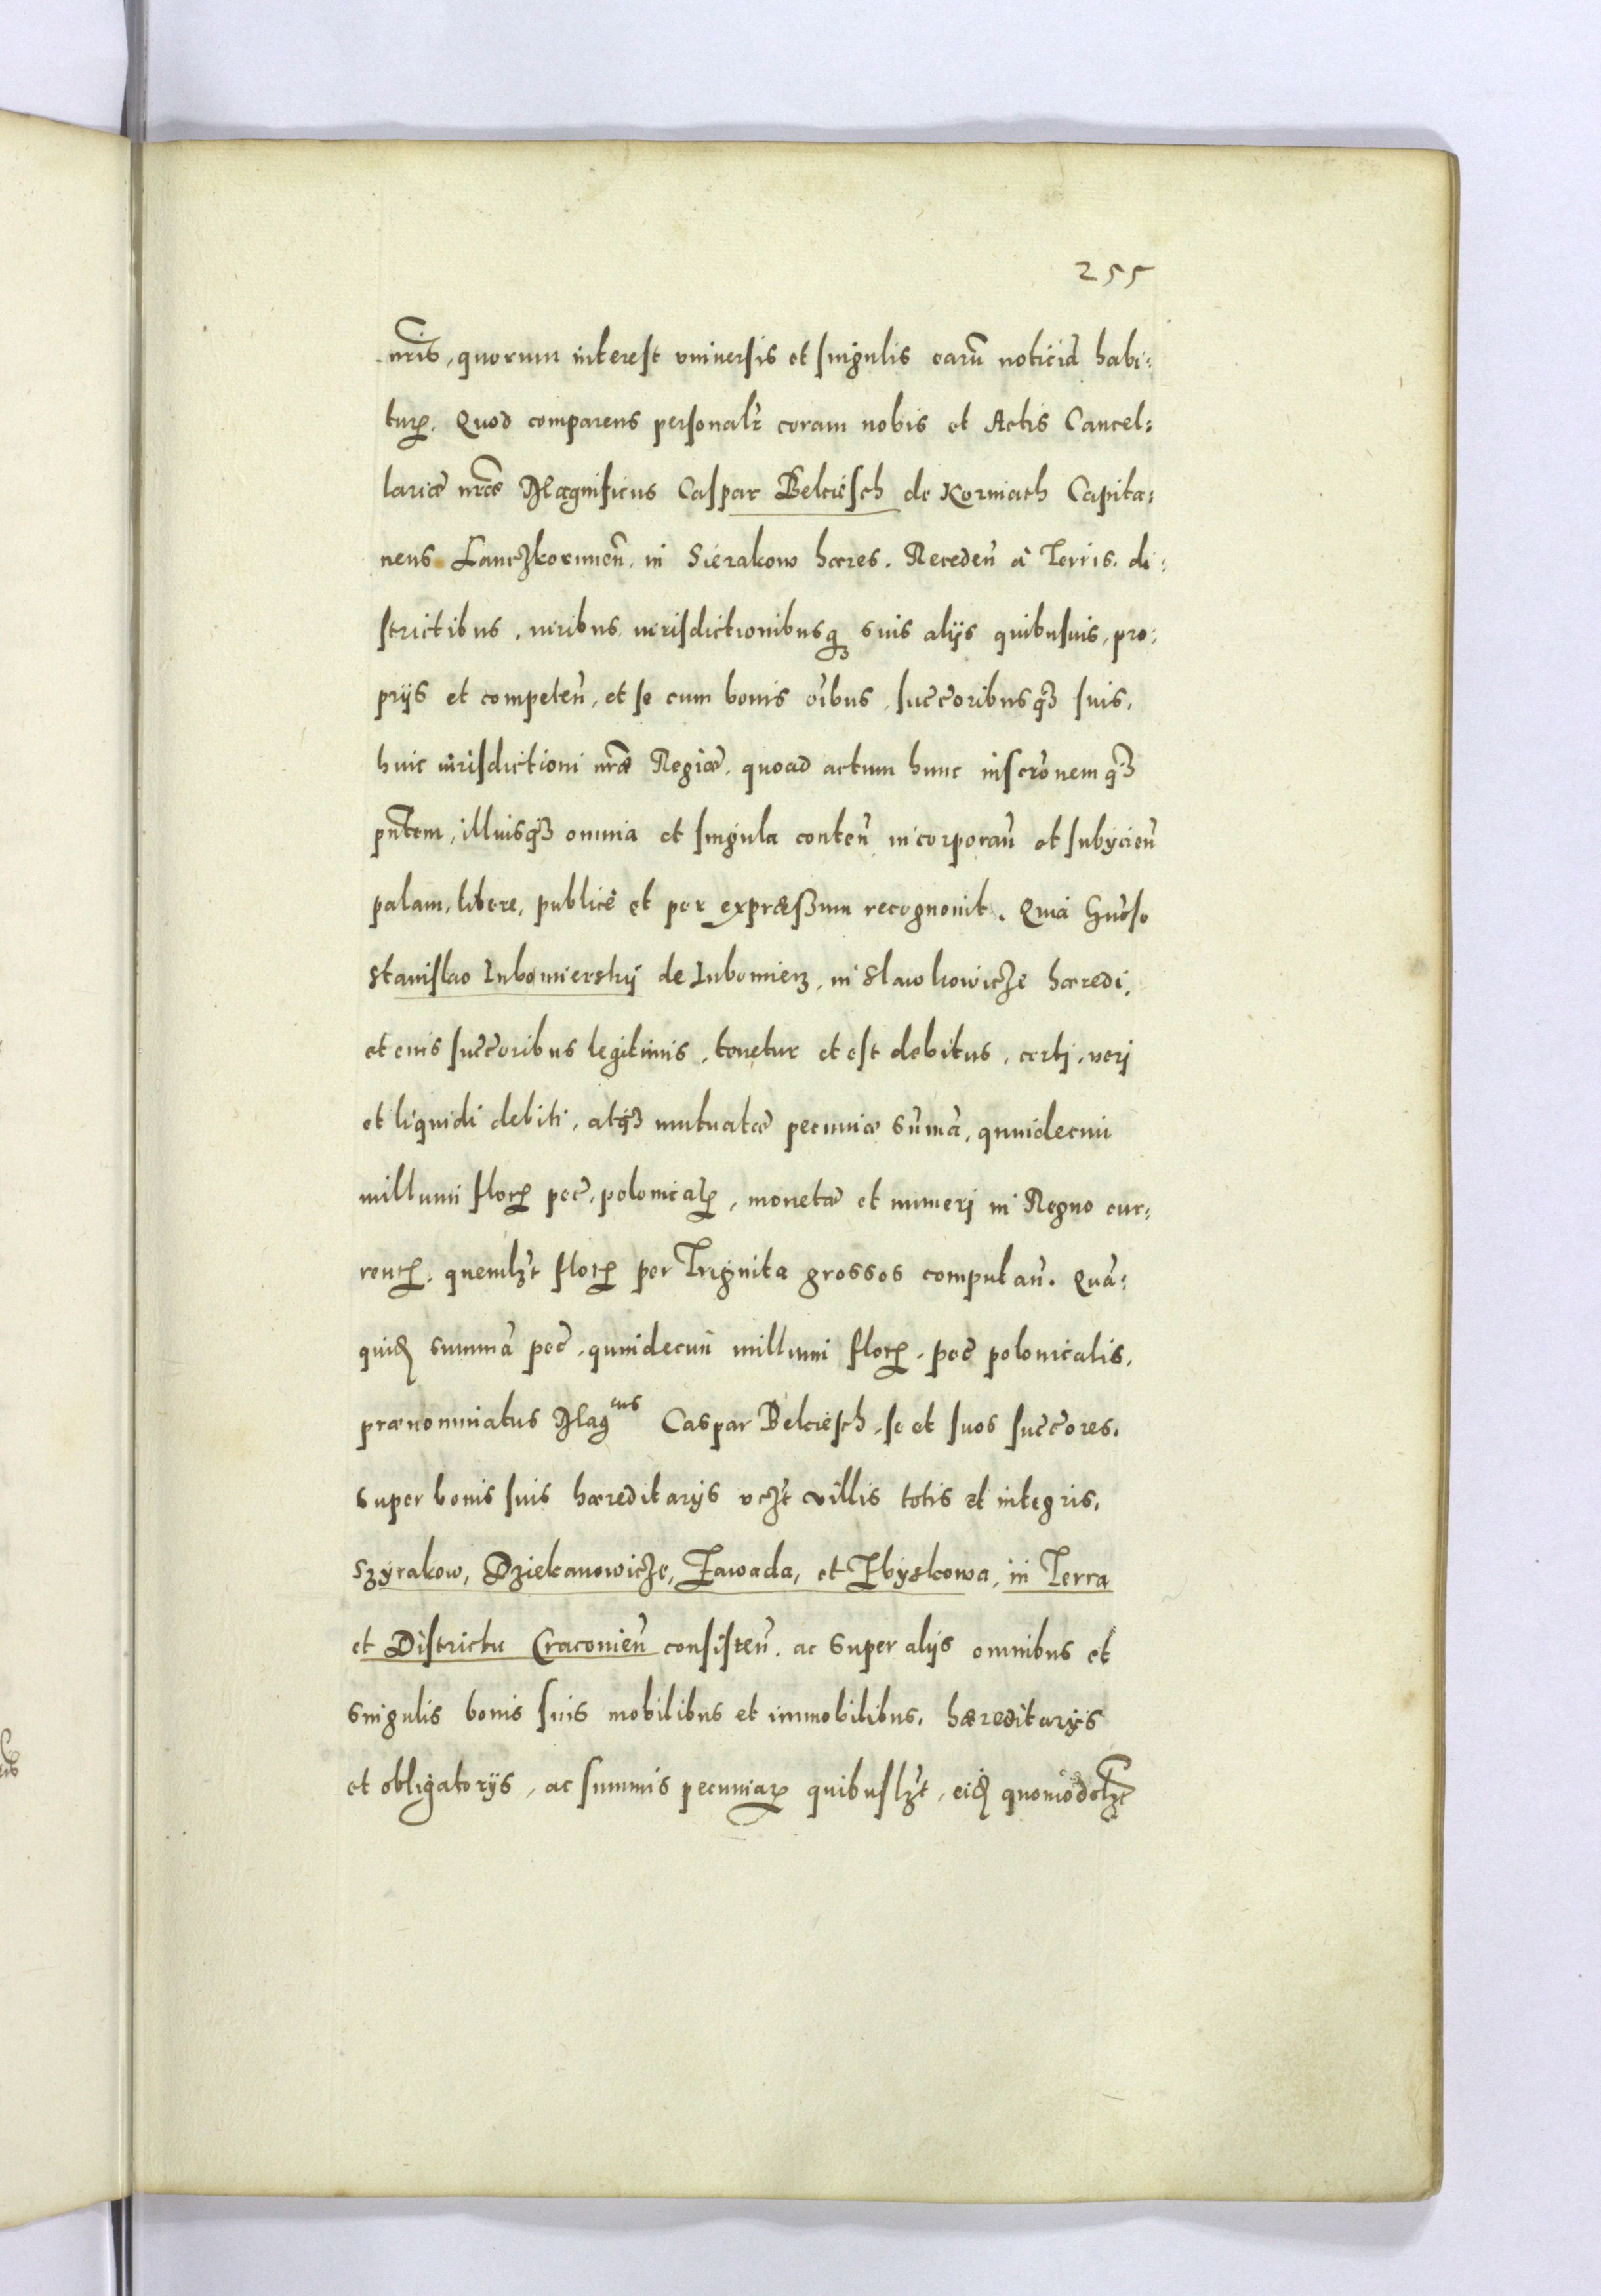 255
nr̃is, quorum interest vniuersis et singulis earũ noticiã habi:
turꝝ. Quod comparens personalr̃ coram nobis et Actis Cancel:
lariæ nr̃æ Magnificus Caspar Bekiesch de Korniath Capita:
neus Lanczkorunen̄. in Sierakow hæres. Receden̄ à Terris. di:
strictibus. iuribus iurisdictionibusqꝫ suis alijs quibusuis, pro:
prijs et competen̄, et se cum bonis oĩbus, succ̃oribusqꝫ suis,
huic iurisdictioni nr̃æ Regiæ. quoad actum hunc inscr̃onemqꝫ
pñtem, illiusqꝫ omnia et singula conten̄ incorporan̄ et subÿcien̄
palam, libere, publicè et per expræßum recognouit. Quia Gñoso
Stanislao Lubomierskÿ de Lubomierz, in Slawkowicze hæredi,
et eius succ̃oribus legitimis, tenetur et est debitus, certj, verj
et liquidi debiti, atqꝫ mutuatæ pecuniæ sũmã, quindecim
millium florꝝ pec̃. polonicalꝝ, monetæ et numerj in Regno cur:
rentꝝ. quemlꝫt florꝝ per Triginta grossos computan̄. Quã:
quiđ summã pec̃. quindecim millium florꝝ. pec̃ polonicalis,
prænominatus Magcus Caspar Bekiesch, se et suos succ̃ores,
super bonis suis hæreditarijs vcꝫt villis totis et integris,
Szÿrakow, Dziekanowicze, Zawada, et Zbÿskowa, in Terra
et Districtu Cracouien̄ consisten̄. ac super alijs omnibus et
singulis bonis suis mobilibus et immobilibus, hæreditarijs
et obligatorijs, ac summis pecuniarꝝ quibuslꝫt, eiđ quomodolꝫt